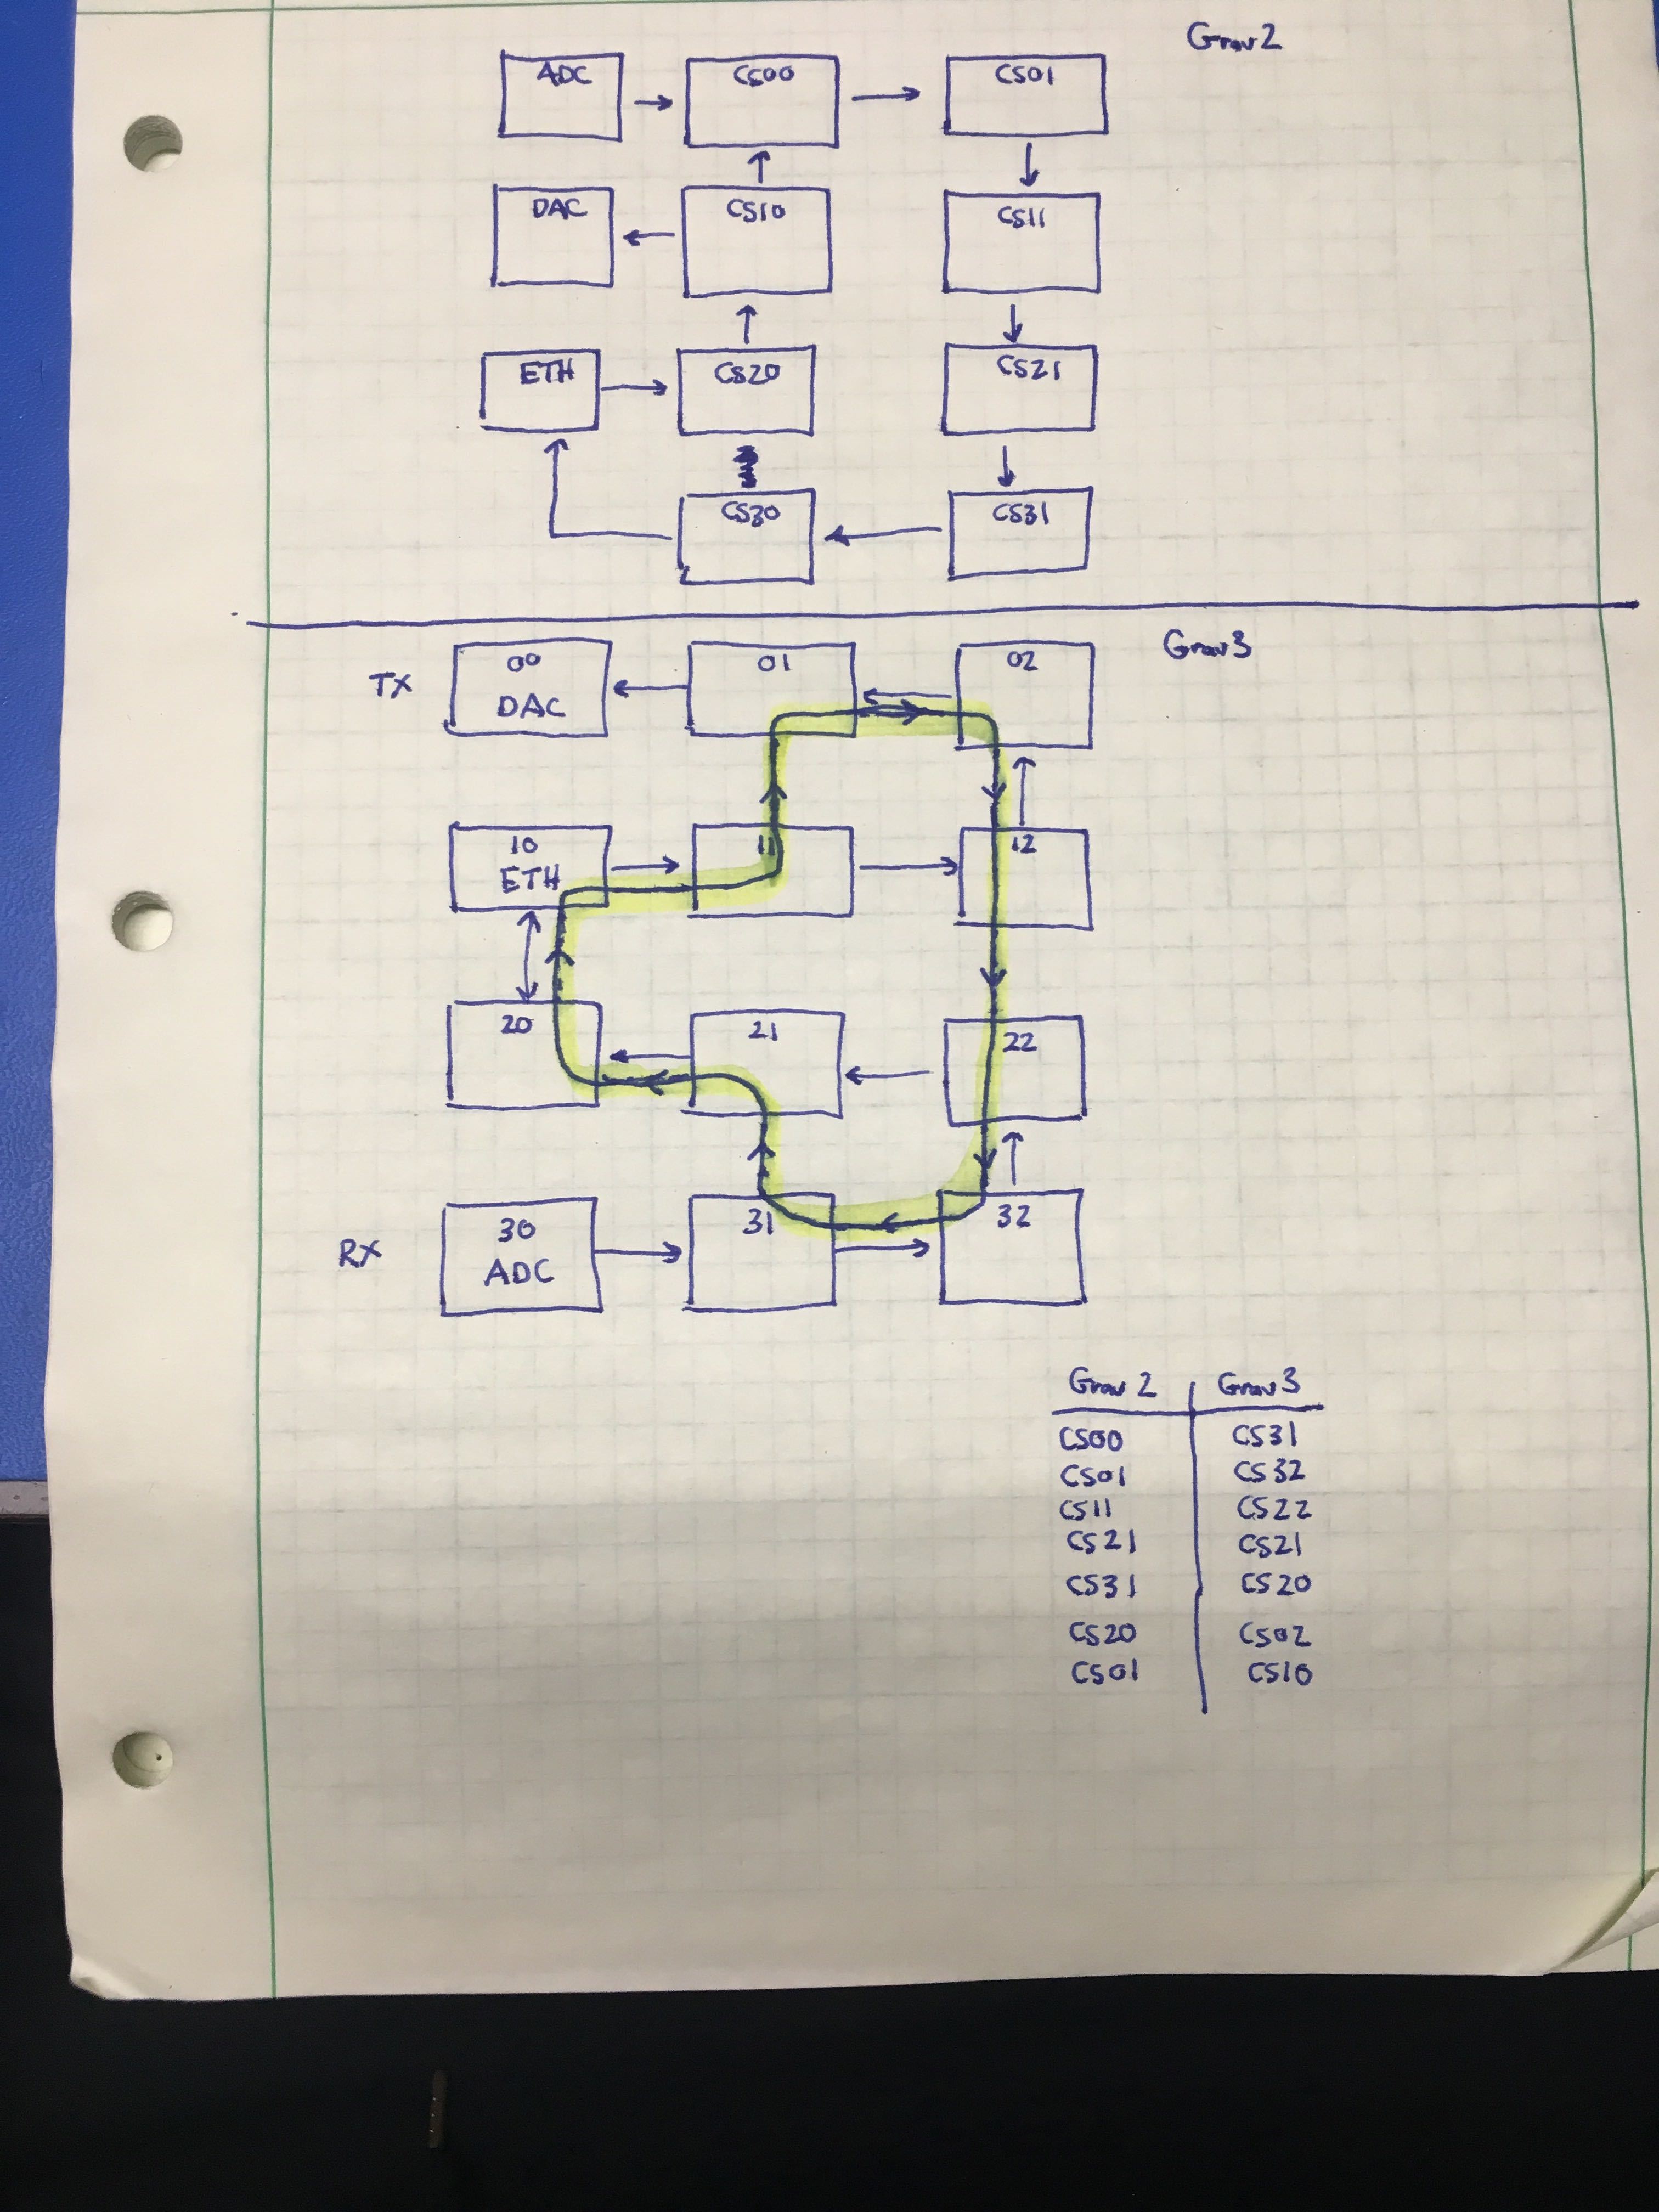 Grav2
ADC CS00 CS01
DAC CS10 CS11
ETH CS20 CS21
CS30 CS31
Grav3
TX 00 01 02
DAC
10 11 12
ETH
20 21 22
RX 30 31 32
ADC
Grav 2 Grav 3
CS00 CS31
CS01 CS32
CS11 CS22
CS21 CS21
CS31 CS20
CS20 CS02
CS01 CS10